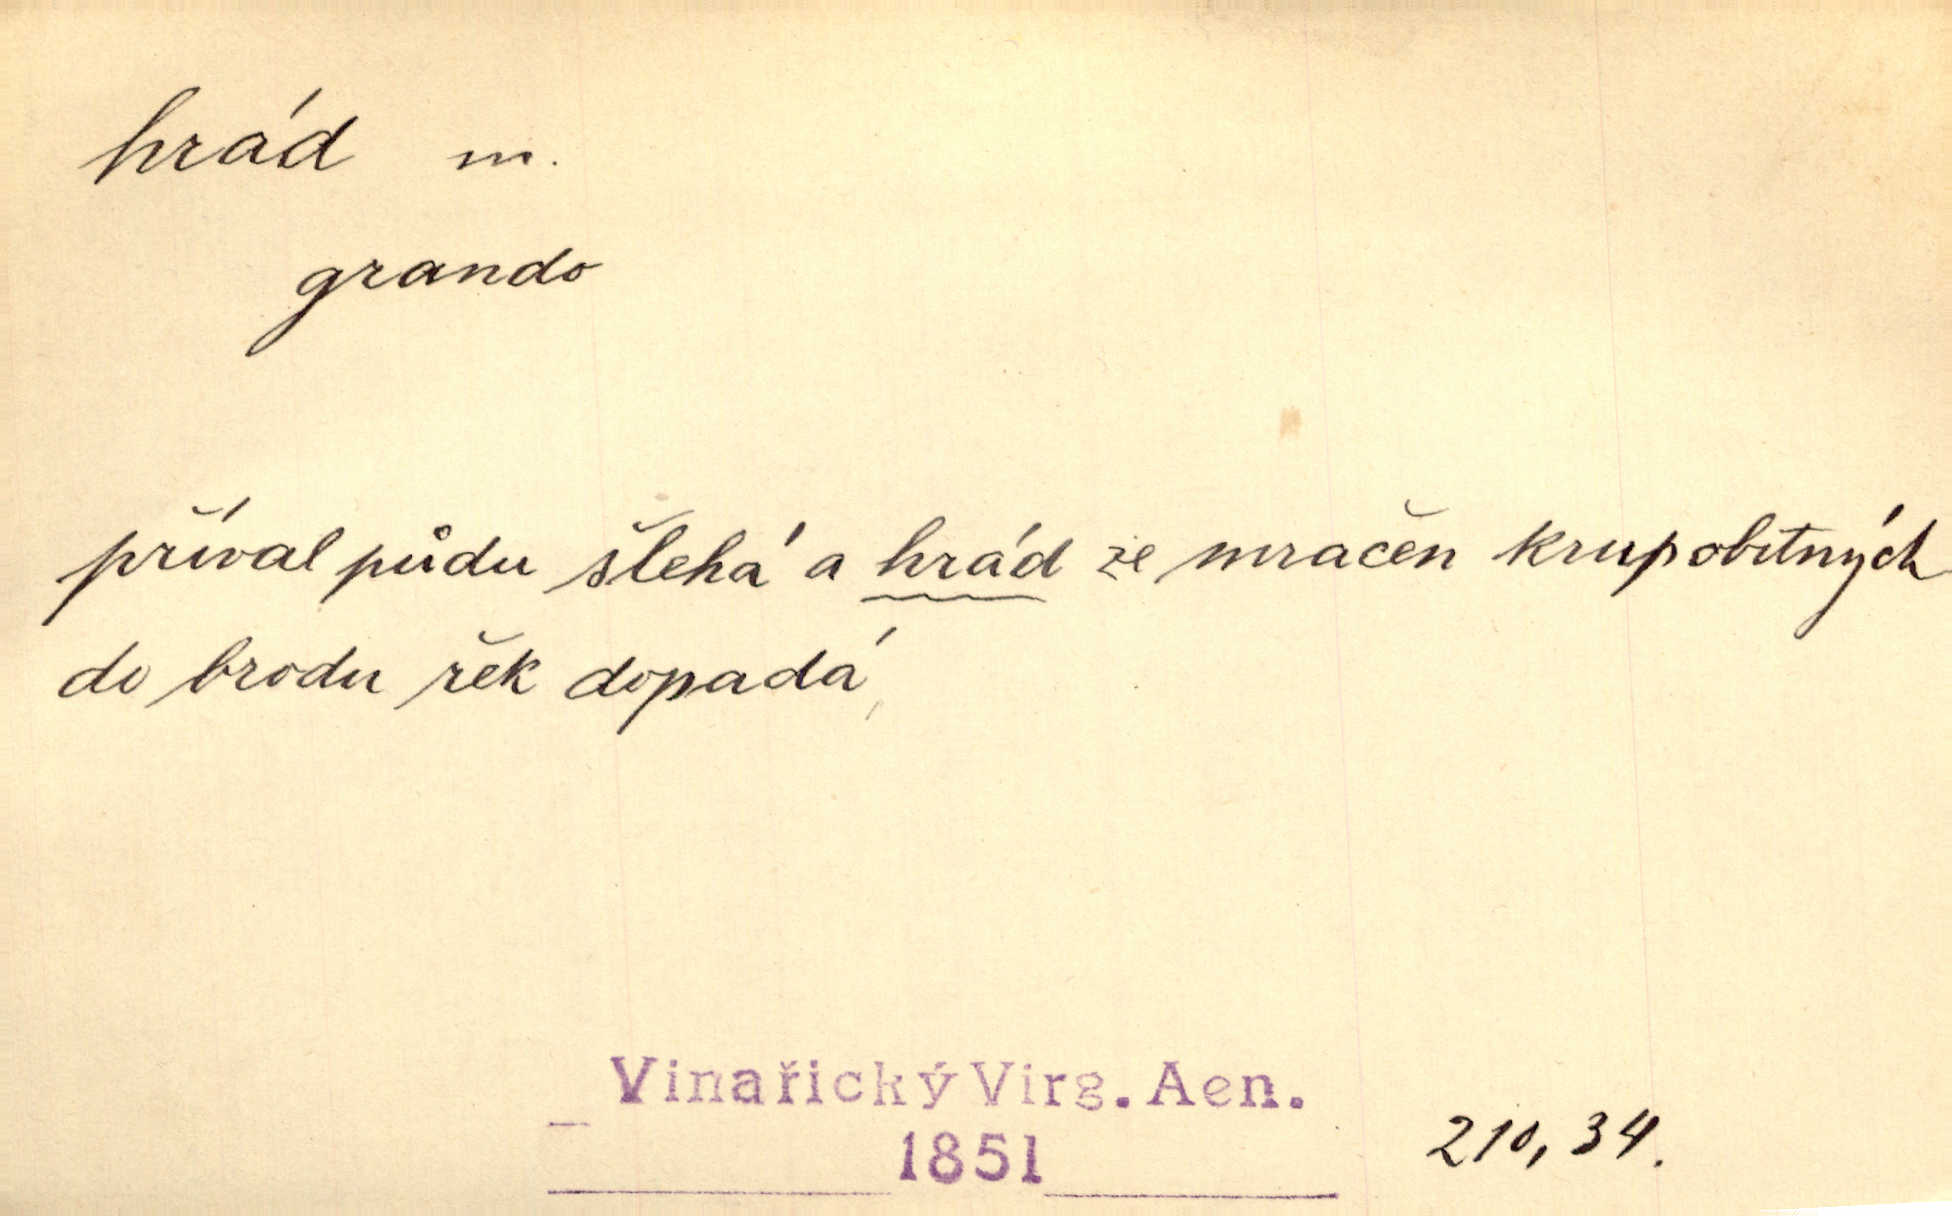 hrád m.
grando
příval půdu šlehá a hrád ze mračen krupobitných
do brodu řek dopadá,
Vinařický Virg. Aen.
1851
210, 34.